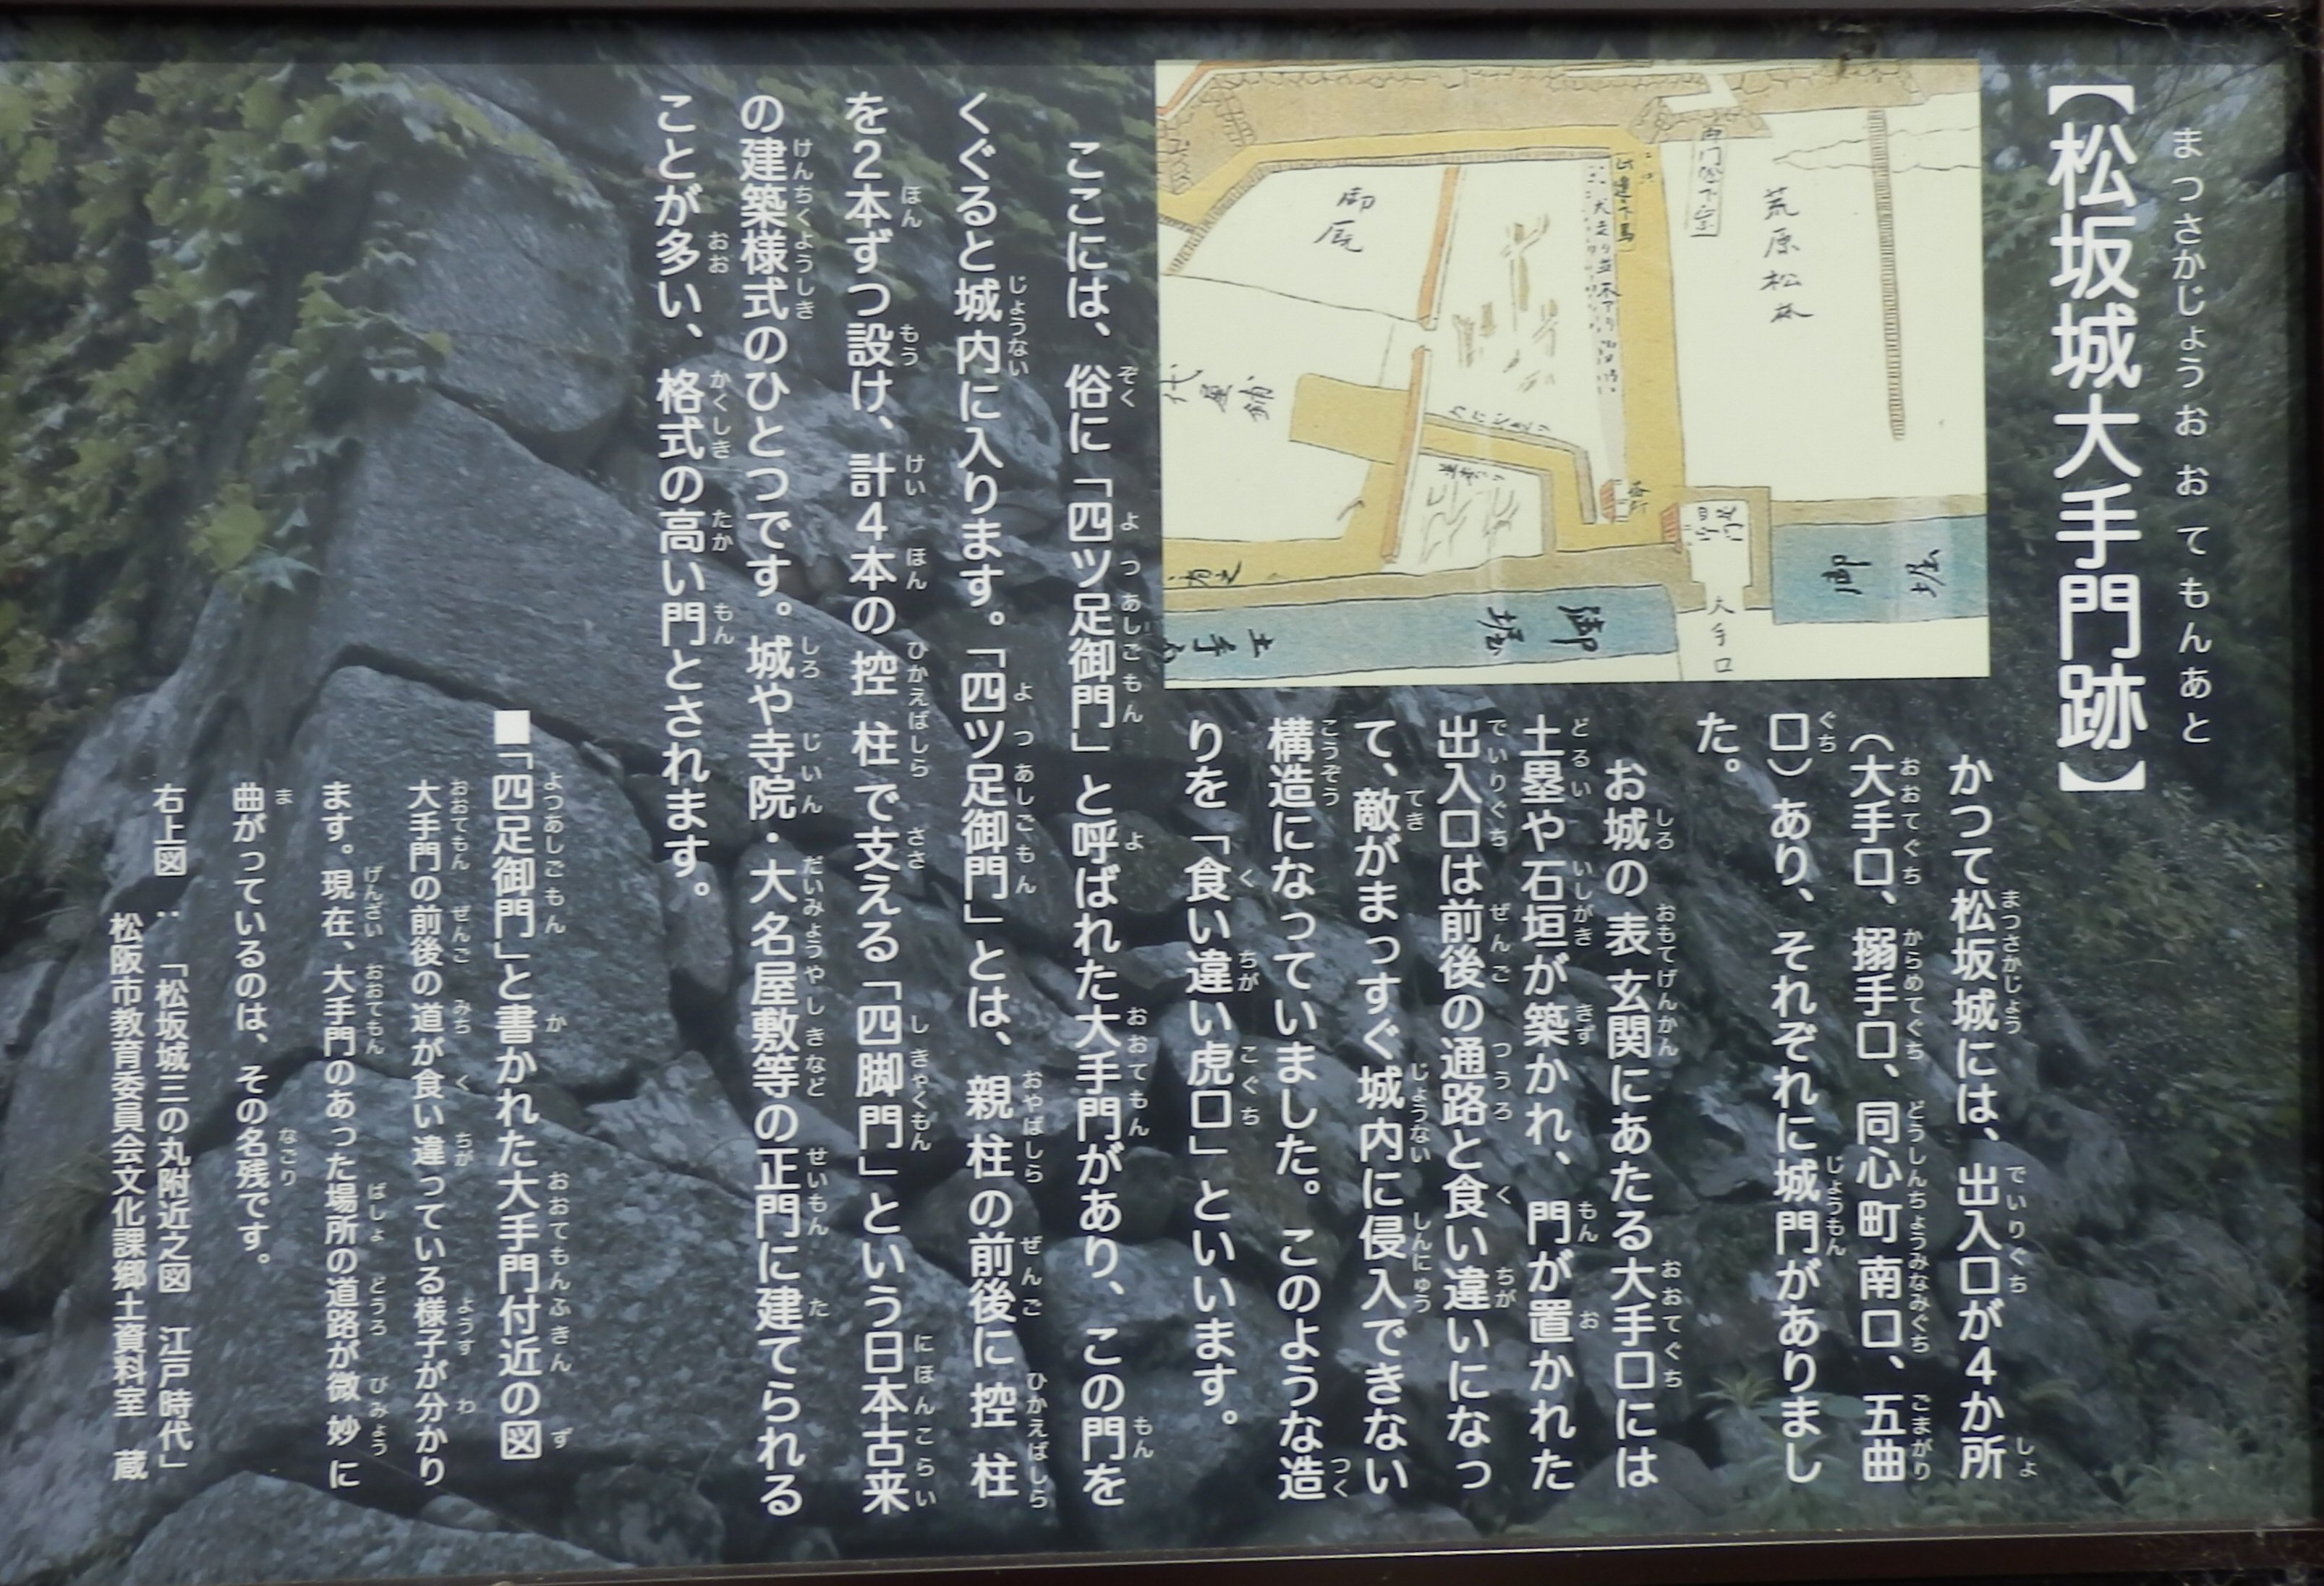 まつさかじょうおおてもんあと
【松坂城大手門跡】
かつて松坂城には、出入口が4か所
(大手口、搦手口、同心町南口、五曲
口)あり、それぞれに城門がありまし
た。
お城の表玄関にあたる大手口には
土塁や石垣が築かれ、門が置かれた
出入口は前後の通路と食い違いになっ
て、敵がまっすぐ城内に侵入できない
構造になっていました。このような造
りを「食い違い虎口」といいます。
ここには、俗に「四ツ足御門」と呼ばれた大手門があり、この門を
くぐると城内に入ります。「四ツ足御門」とは、親柱の前後に控柱
を2本ずつ設け、計4本の控柱で支える「四脚門」という日本古来
の建築様式のひとつです。城や寺院・大名屋敷等の正門に建てられる
ことが多い、格式の高い門とされます。
■「四足御門」と書かれた大手門付近の図
大手門の前後の道が食い違っている様子が分かり
ます。現在、大手門のあった場所の道路が微妙に
曲がっているのは、その名残です。
右上図：「松坂城三の丸附近之図 江戸時代」
松阪市教育委員会文化課郷土資料室 蔵
荒原松林
御厩
御堀
大手口
御堀
土手